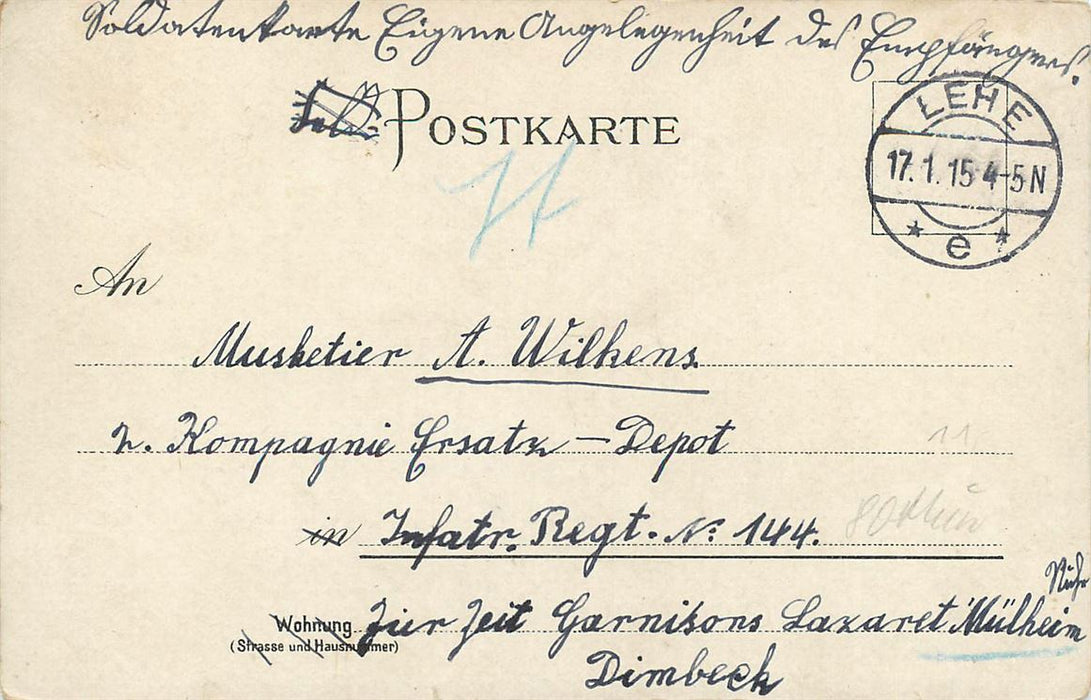 Soldatenkarte Eigene Angelegenheit des Empfängers.
POSTKARTE
LEHE
17.1.15 4-5N
* e *
An
Musketier A. Wilkens.
2. Kompagnie Ersatz – Depot
11
in Infatr. Regt. No: 144.
Ruhr
Wohnung Zur Zeit Garnisons Lazaret Mülheim
(Strasse und Hausnummer)
Dimbeck